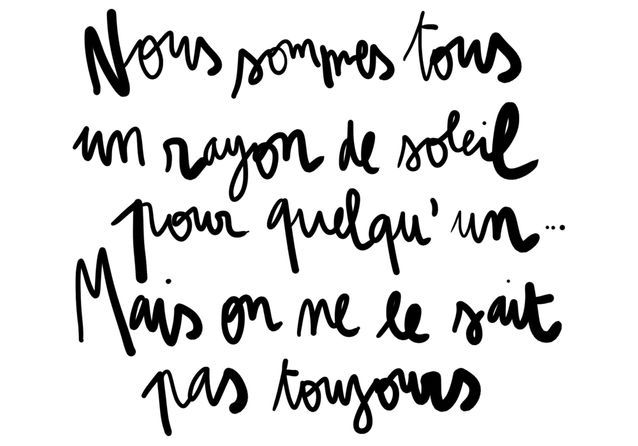 Nous sommes tous
un rayon de soleil
pour quelqu'un...
Mais on ne le sait
pas toujours